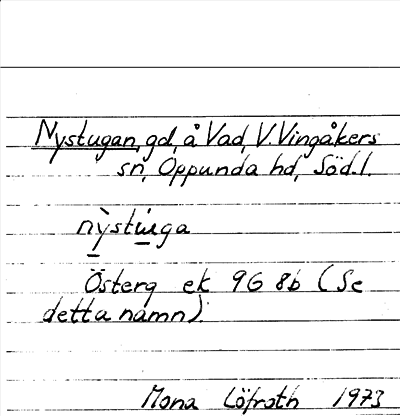 Nystugan, gd, å Vad, V. Vingåkers
sn, Oppunda hd, Söd.l.
nỳstúga
Österg ek 9G 8b (Se
detta namn).
Mona Löfroth 1973